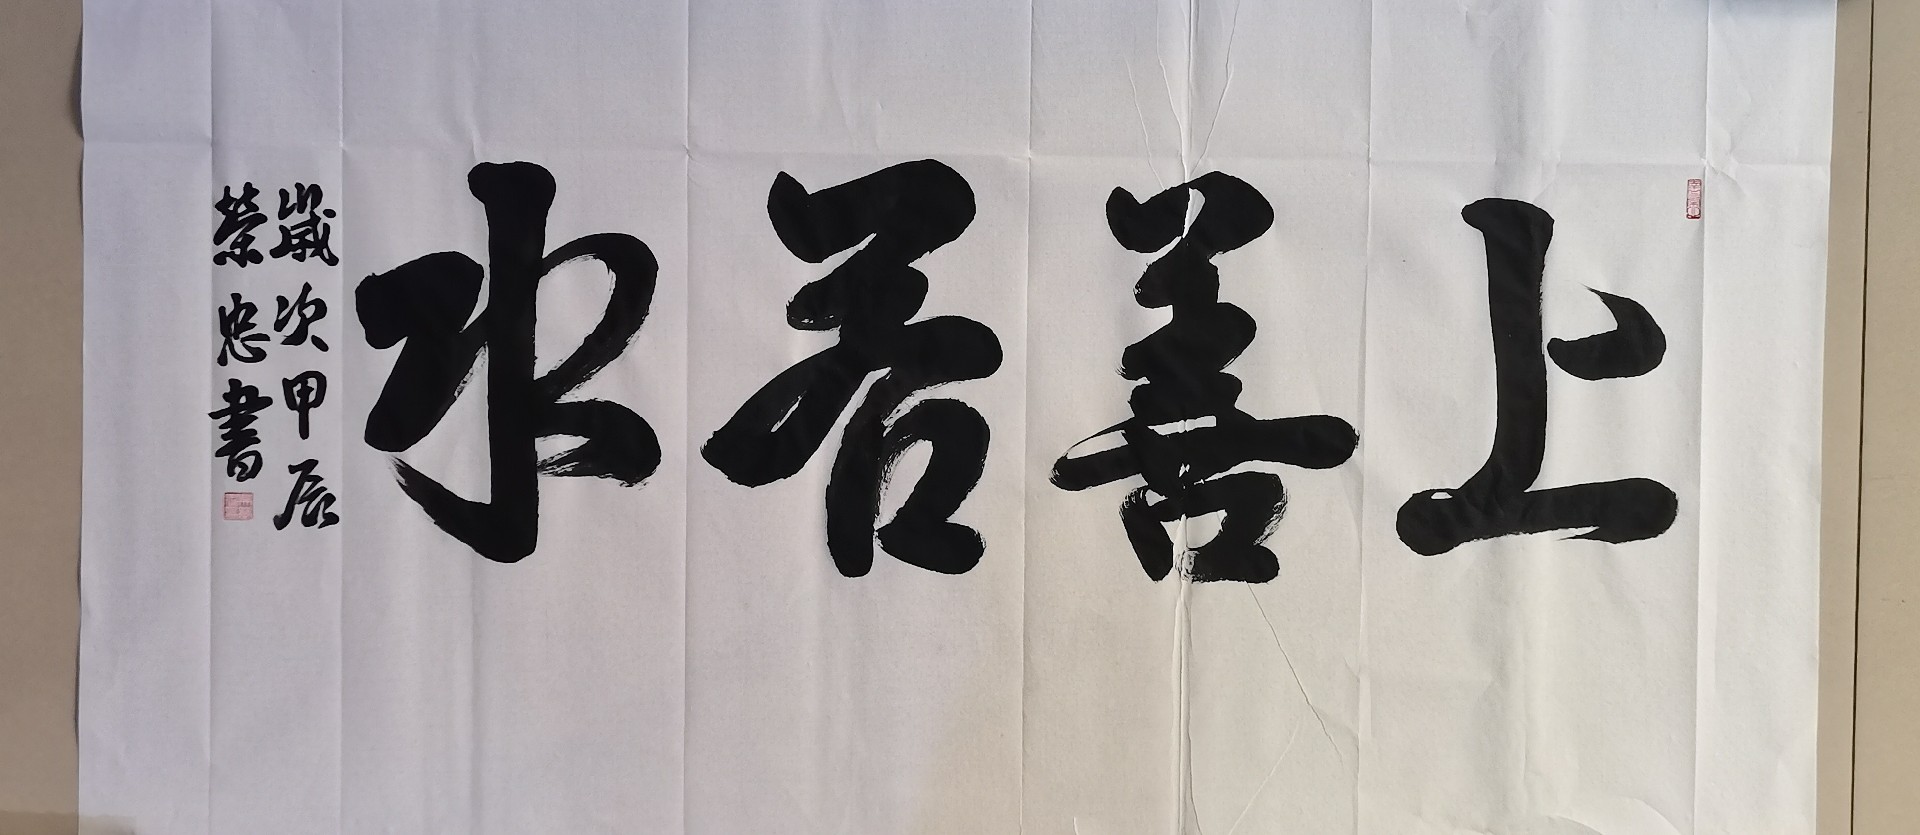 上善若水
歲次甲辰
榮忠書